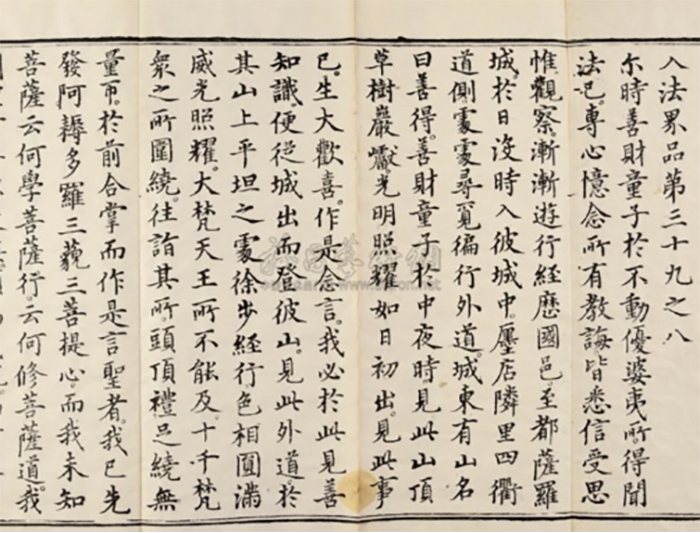 入法界品第三十九之八
尔時善財童子於不動優婆夷所得聞
法已。專心憶念所有教誨皆悉信受思
惟觀察漸漸遊行經歷國邑。至都薩羅
城。於日沒時入彼城中。廛店隣里四衢
道側處處尋覓徧行外道。城東有山名
曰善得。善財童子於中夜時見此山頂
草樹巖巘。光明照耀如日初出。見此事
已。生大歡喜。作是念言。我必於此見善
知識便從城出而登彼山。見此外道。於
其山上平坦之處徐步經行色相圓滿
威光照耀。大梵天王所不能及。十千梵
衆之所圍繞。往詣其所。頭頂禮足繞無
量帀。於前合掌而作是言聖者。我已先
發阿耨多羅三藐三菩提心。而我未知
菩薩云何學菩薩行。云何修菩薩道。我